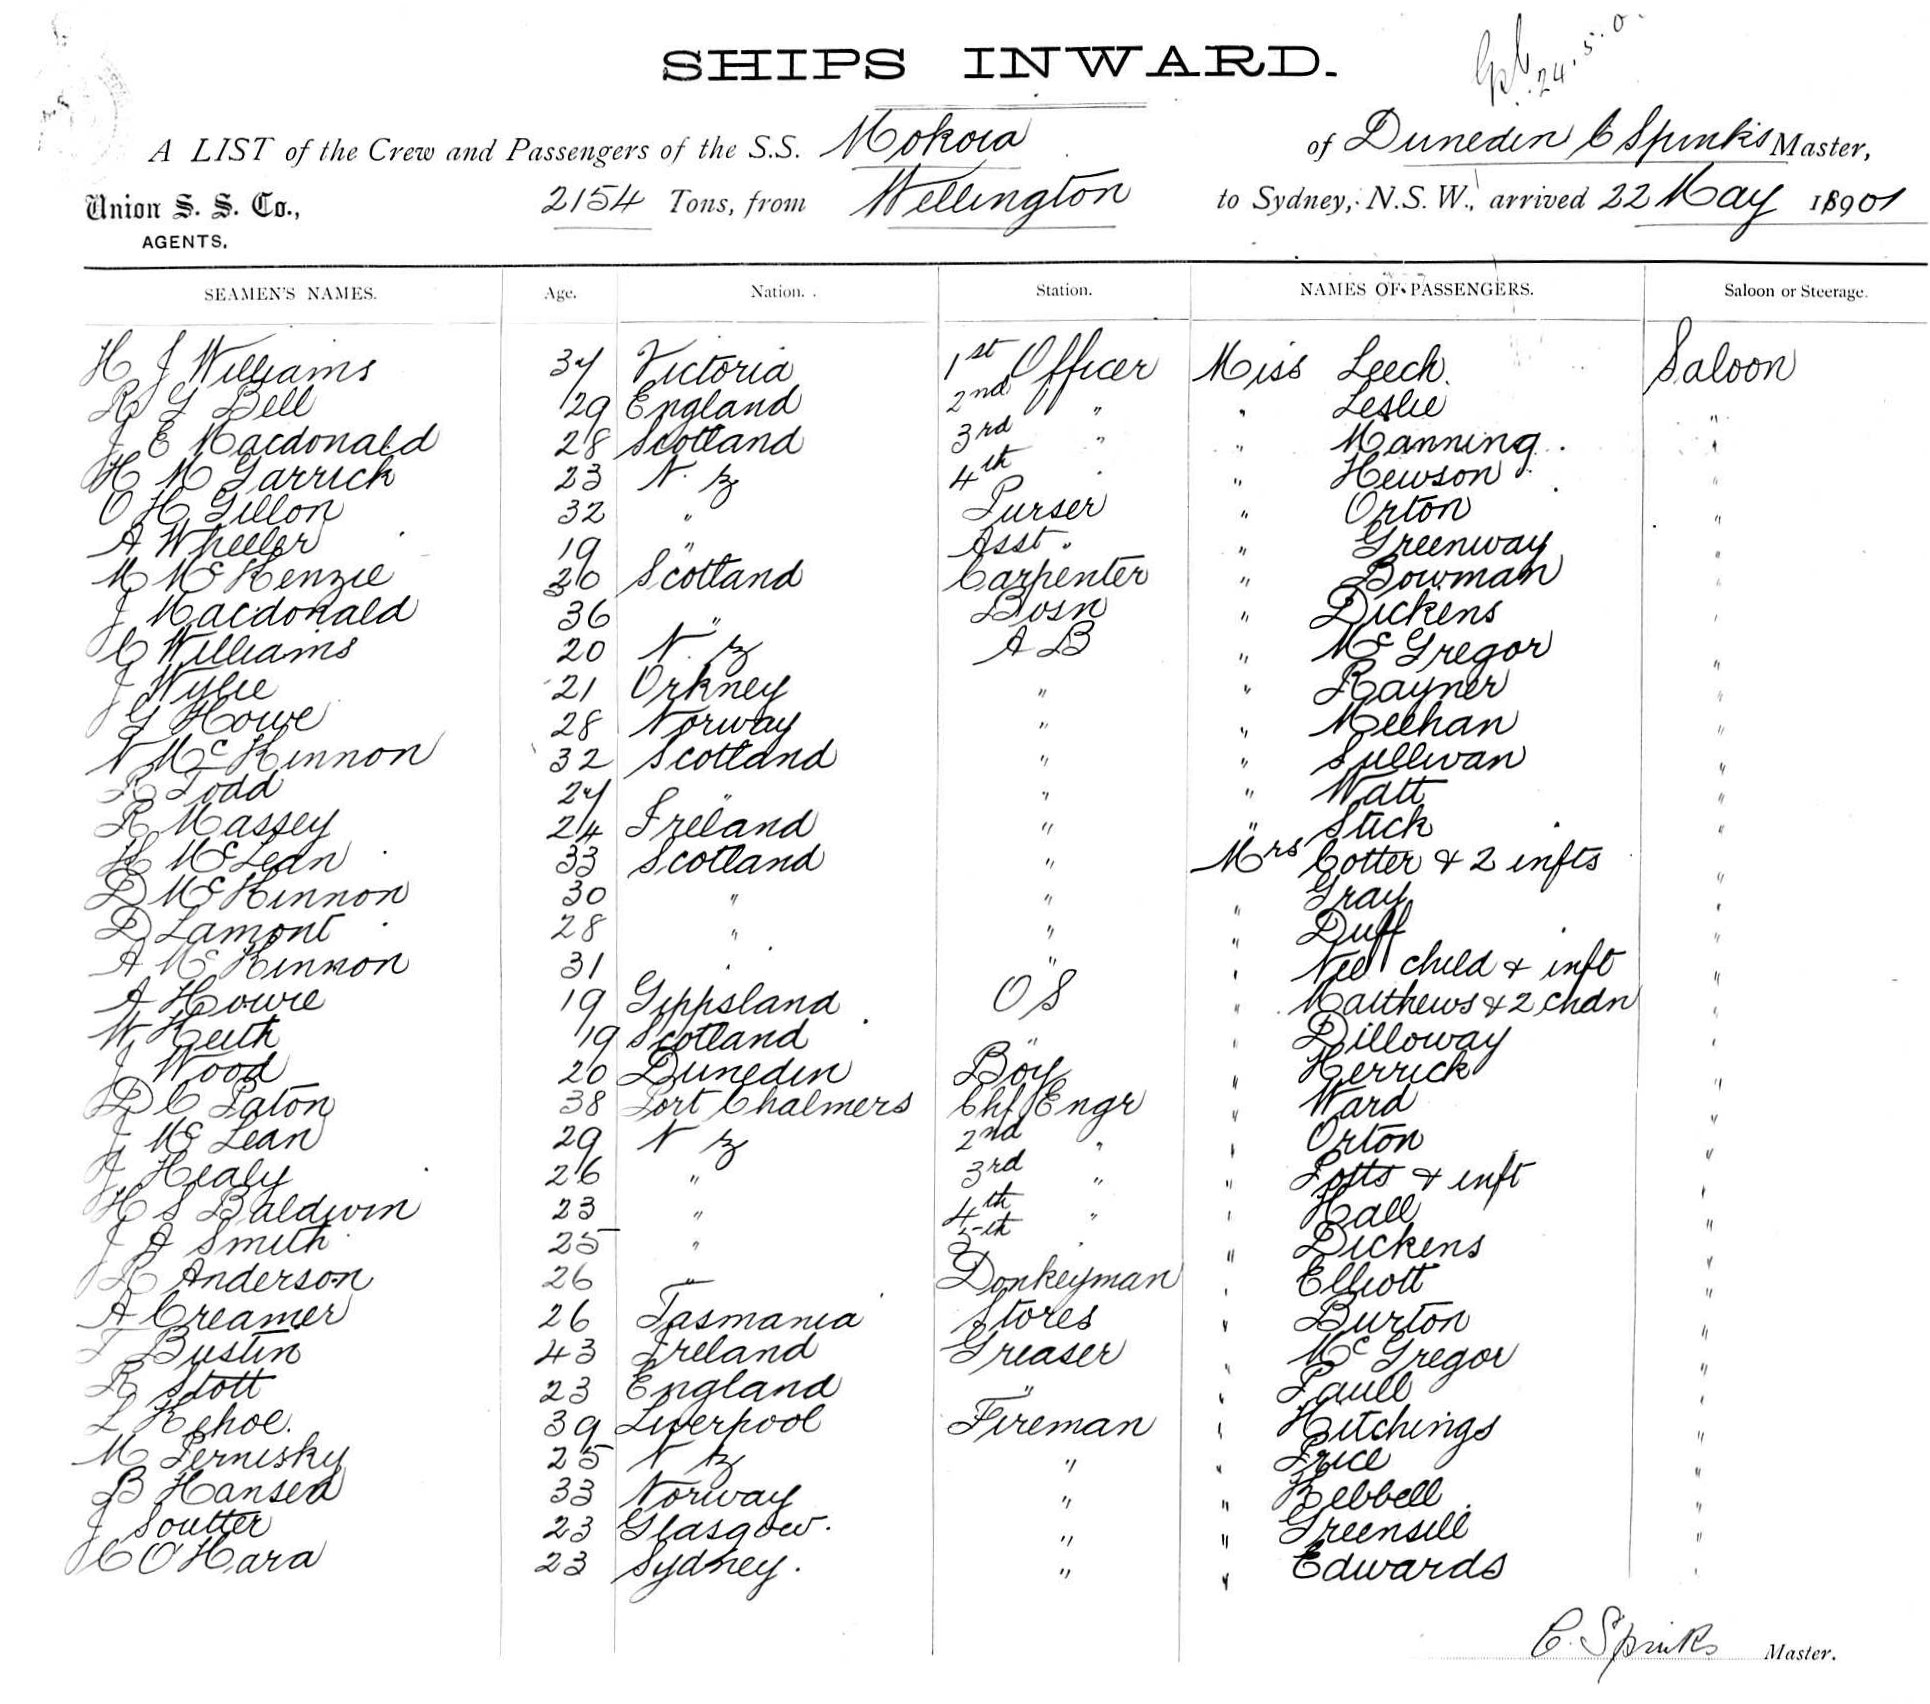 SHIPS INWARD.
24.5.0
A LIST of the Crew and Passengers of the S.S. Mokoia of Dunedin C Spinks Master,
Union S. S. Co., 2154 Tons, from Wellington to Sydney, N.S.W., arrived 22 May 18901
AGENTS.
SEAMEN'S NAMES. Age. Nation. Station. NAMES OF PASSENGERS. Saloon or Steerage.
H J Williams 37 Victoria 1st Officer Miss Leech. Saloon
R G Bell 29 England 2nd " " Leslie "
J E Macdonald 28 Scotland 3rd " " Manning "
H M Garrick 23 N. Z 4th " " Hewson "
O H Gillon 32 " Purser " Orton "
A Wheeler 19 " Asst " " Greenway "
M McKenzie 26 Scotland Carpenter " Bowman "
J Macdonald 36 " Bosn " Dickens "
C Williams 20 N. Z A B " McGregor "
J Wylie 21 Orkney " " Rayner "
G Howe 28 Norway " " Meehan "
N McKinnon 32 Scotland " " Sullivan "
R Todd 27 " " " Watt "
R Massey 24 Ireland " " Stick "
H McLean 33 Scotland " Mrs Cotter & 2 infts "
D McKinnon 30 " " " Gray "
D Lamont 28 " " " Duff "
A McKinnon 31 " " " Nell child & inft "
A Howie 19 Gippsland O S " Matthews & 2 chdn "
W Keith 19 Scotland " " Dilloway "
J Wood 20 Dunedin Boy " Herrick "
D C Paton 38 Port Chalmers Chf Engr " Ward "
J McLean 29 N Z 2nd " " Orton "
J Healy 26 " 3rd " " Potts & inft "
H S Baldwin 23 " 4th " " Hall "
J A Smith 25 " 5th " " Dickens "
R Anderson 26 " Donkeyman " Elliott "
A Creamer 26 Tasmania Stores " Burton "
T Bustin 43 Ireland Greaser " McGregor "
R Stott 23 England " " Paull "
L Kehoe. 39 Liverpool Fireman " Hitchings "
M Pernisky 25 N Z " " Price "
B Hansen 33 Norway " " Kebbell "
J Soutter 23 Glasgow. " " Greensill "
C O'Hara 23 Sydney. " " Edwards "
C. Spinks Master.